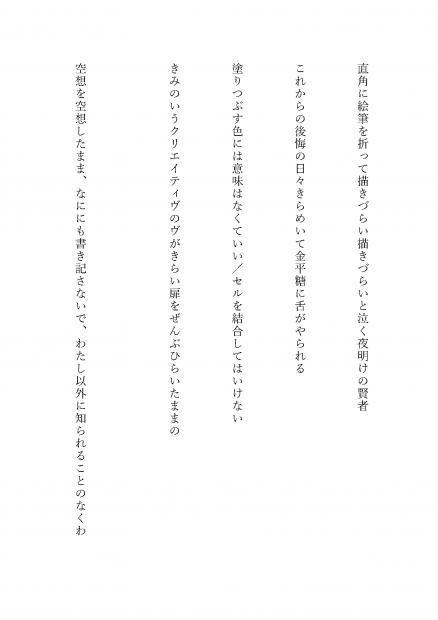 直角に絵筆を折って描きづらい描きづらいと泣く夜明けの賢者
これからの後悔の日々きらめいて金平糖に舌がやられる
塗りつぶす色には意味はなくていい／セルを結合してはいけない
きみのいうクリエイティヴのヴがきらい扉をぜんぶひらいたままの
空想を空想したまま、なににも書き記さないで、わたし以外に知られることのなくわ